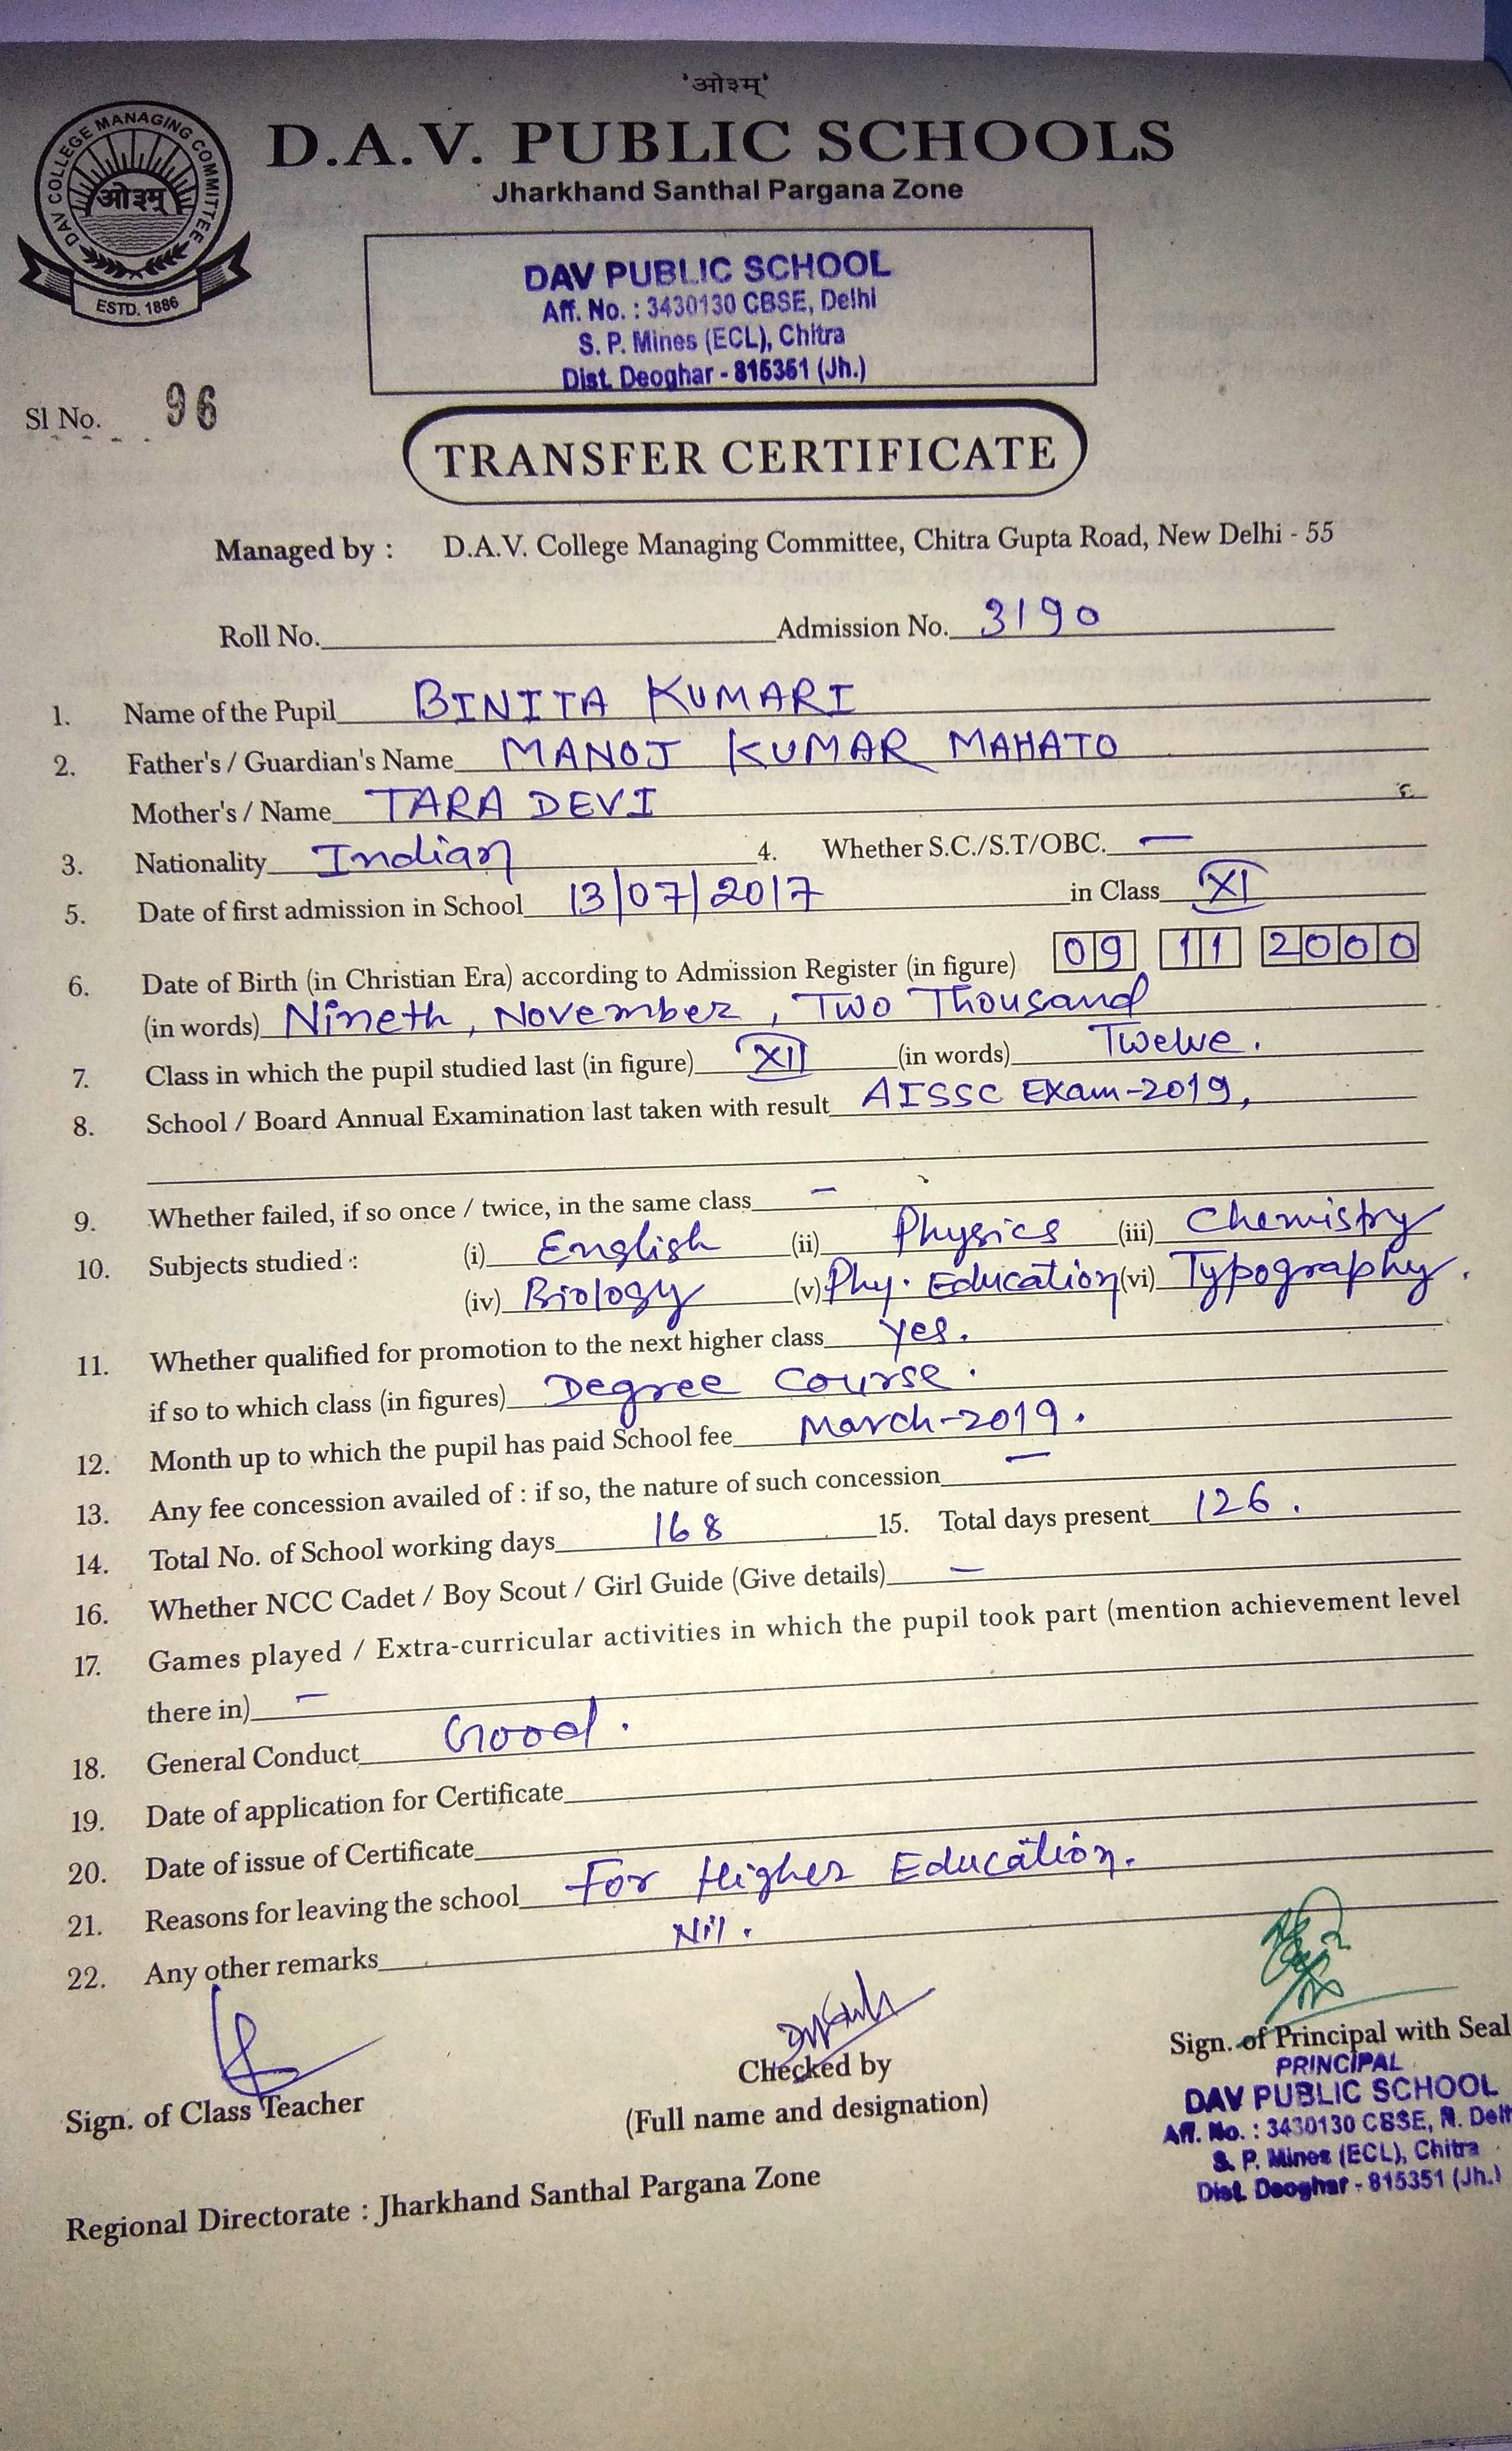 'ओ३म्'
DAV COLLEGE MANAGING COMMITTEE
ओ३म्
ESTD. 1886
D.A.V. PUBLIC SCHOOLS
Jharkhand Santhal Pargana Zone
DAV PUBLIC SCHOOL
Aff. No. : 3430130 CBSE, Delhi
S. P. Mines (ECL), Chitra
Dist. Deoghar - 815351 (Jh.)
Sl No. 96
TRANSFER CERTIFICATE
Managed by : D.A.V. College Managing Committee, Chitra Gupta Road, New Delhi - 55
Roll No. Admission No. 3190
1. Name of the Pupil BINITA KUMARI
2. Father's / Guardian's Name MANOJ KUMAR MAHATO
Mother's / Name TARA DEVI
3. Nationality Indian 4. Whether S.C./S.T/OBC. —
5. Date of first admission in School 13/07/2017 in Class XI
6. Date of Birth (in Christian Era) according to Admission Register (in figure) 09 11 2000
(in words) Nineth, November, Two Thousand
7. Class in which the pupil studied last (in figure) XII (in words) Twelve.
8. School / Board Annual Examination last taken with result AISSC Exam-2019,
9. Whether failed, if so once / twice, in the same class —
10. Subjects studied : (i) English (ii) Physics (iii) Chemistry
(iv) Biology (v) Phy. Education (vi) Typography.
11. Whether qualified for promotion to the next higher class yes.
if so to which class (in figures) Degree Course.
12. Month up to which the pupil has paid School fee March-2019.
13. Any fee concession availed of : if so, the nature of such concession —
14. Total No. of School working days 168 15. Total days present 126.
16. Whether NCC Cadet / Boy Scout / Girl Guide (Give details) —
17. Games played / Extra-curricular activities in which the pupil took part (mention achievement level
there in) —
18. General Conduct Good.
19. Date of application for Certificate
20. Date of issue of Certificate
21. Reasons for leaving the school For Higher Education.
22. Any other remarks Nil.
Sign. of Class Teacher
Checked by
(Full name and designation)
Sign. of Principal with Seal
PRINCIPAL
DAV PUBLIC SCHOOL
Aff. No. : 3430130 CBSE, N. Delh
S. P. Mines (ECL), Chitra
Dist. Deoghar - 815351 (Jh.)
Regional Directorate : Jharkhand Santhal Pargana Zone